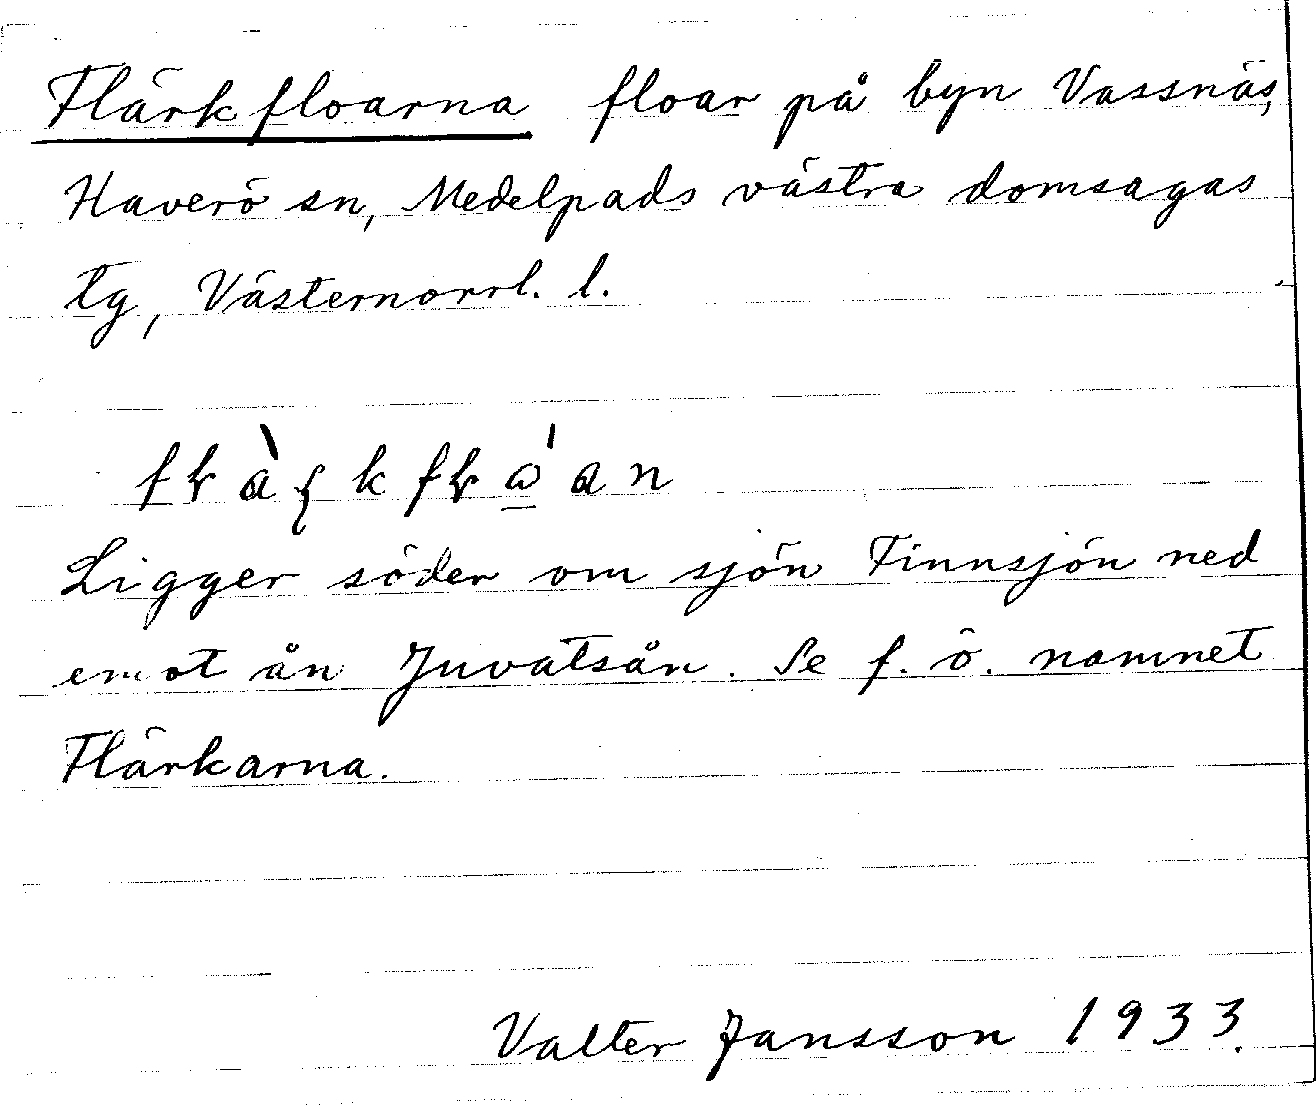 Flärkfloarna floar på byn Vassnäs,
Haverö sn, Medelpads västra domsagas
tg, Västernorrl. l.
Ligger söder om sjön Finnsjön ned
emot ån Juvatsån. Se f. ö. namnet
Flärkarna.
Valter Jansson 1933.